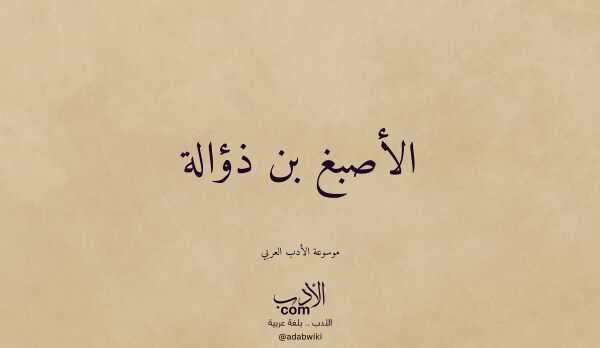 الأصبغ بن ذؤالة
موسوعة الأدب العربي
الأدب
com
الأدب .. بلغة عربية
@adabwiki